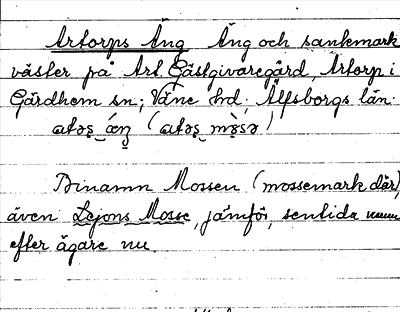 Artorps Äng Äng och sankmark
väster på Art. Gästgivaregård, Artorp i
Gärdhem sn; Väne hd. Älfsborgs län.
Binamn Mossen (mossemark där),
även Lejons Mosse, jämför, sentida namn
efter ägare nu.